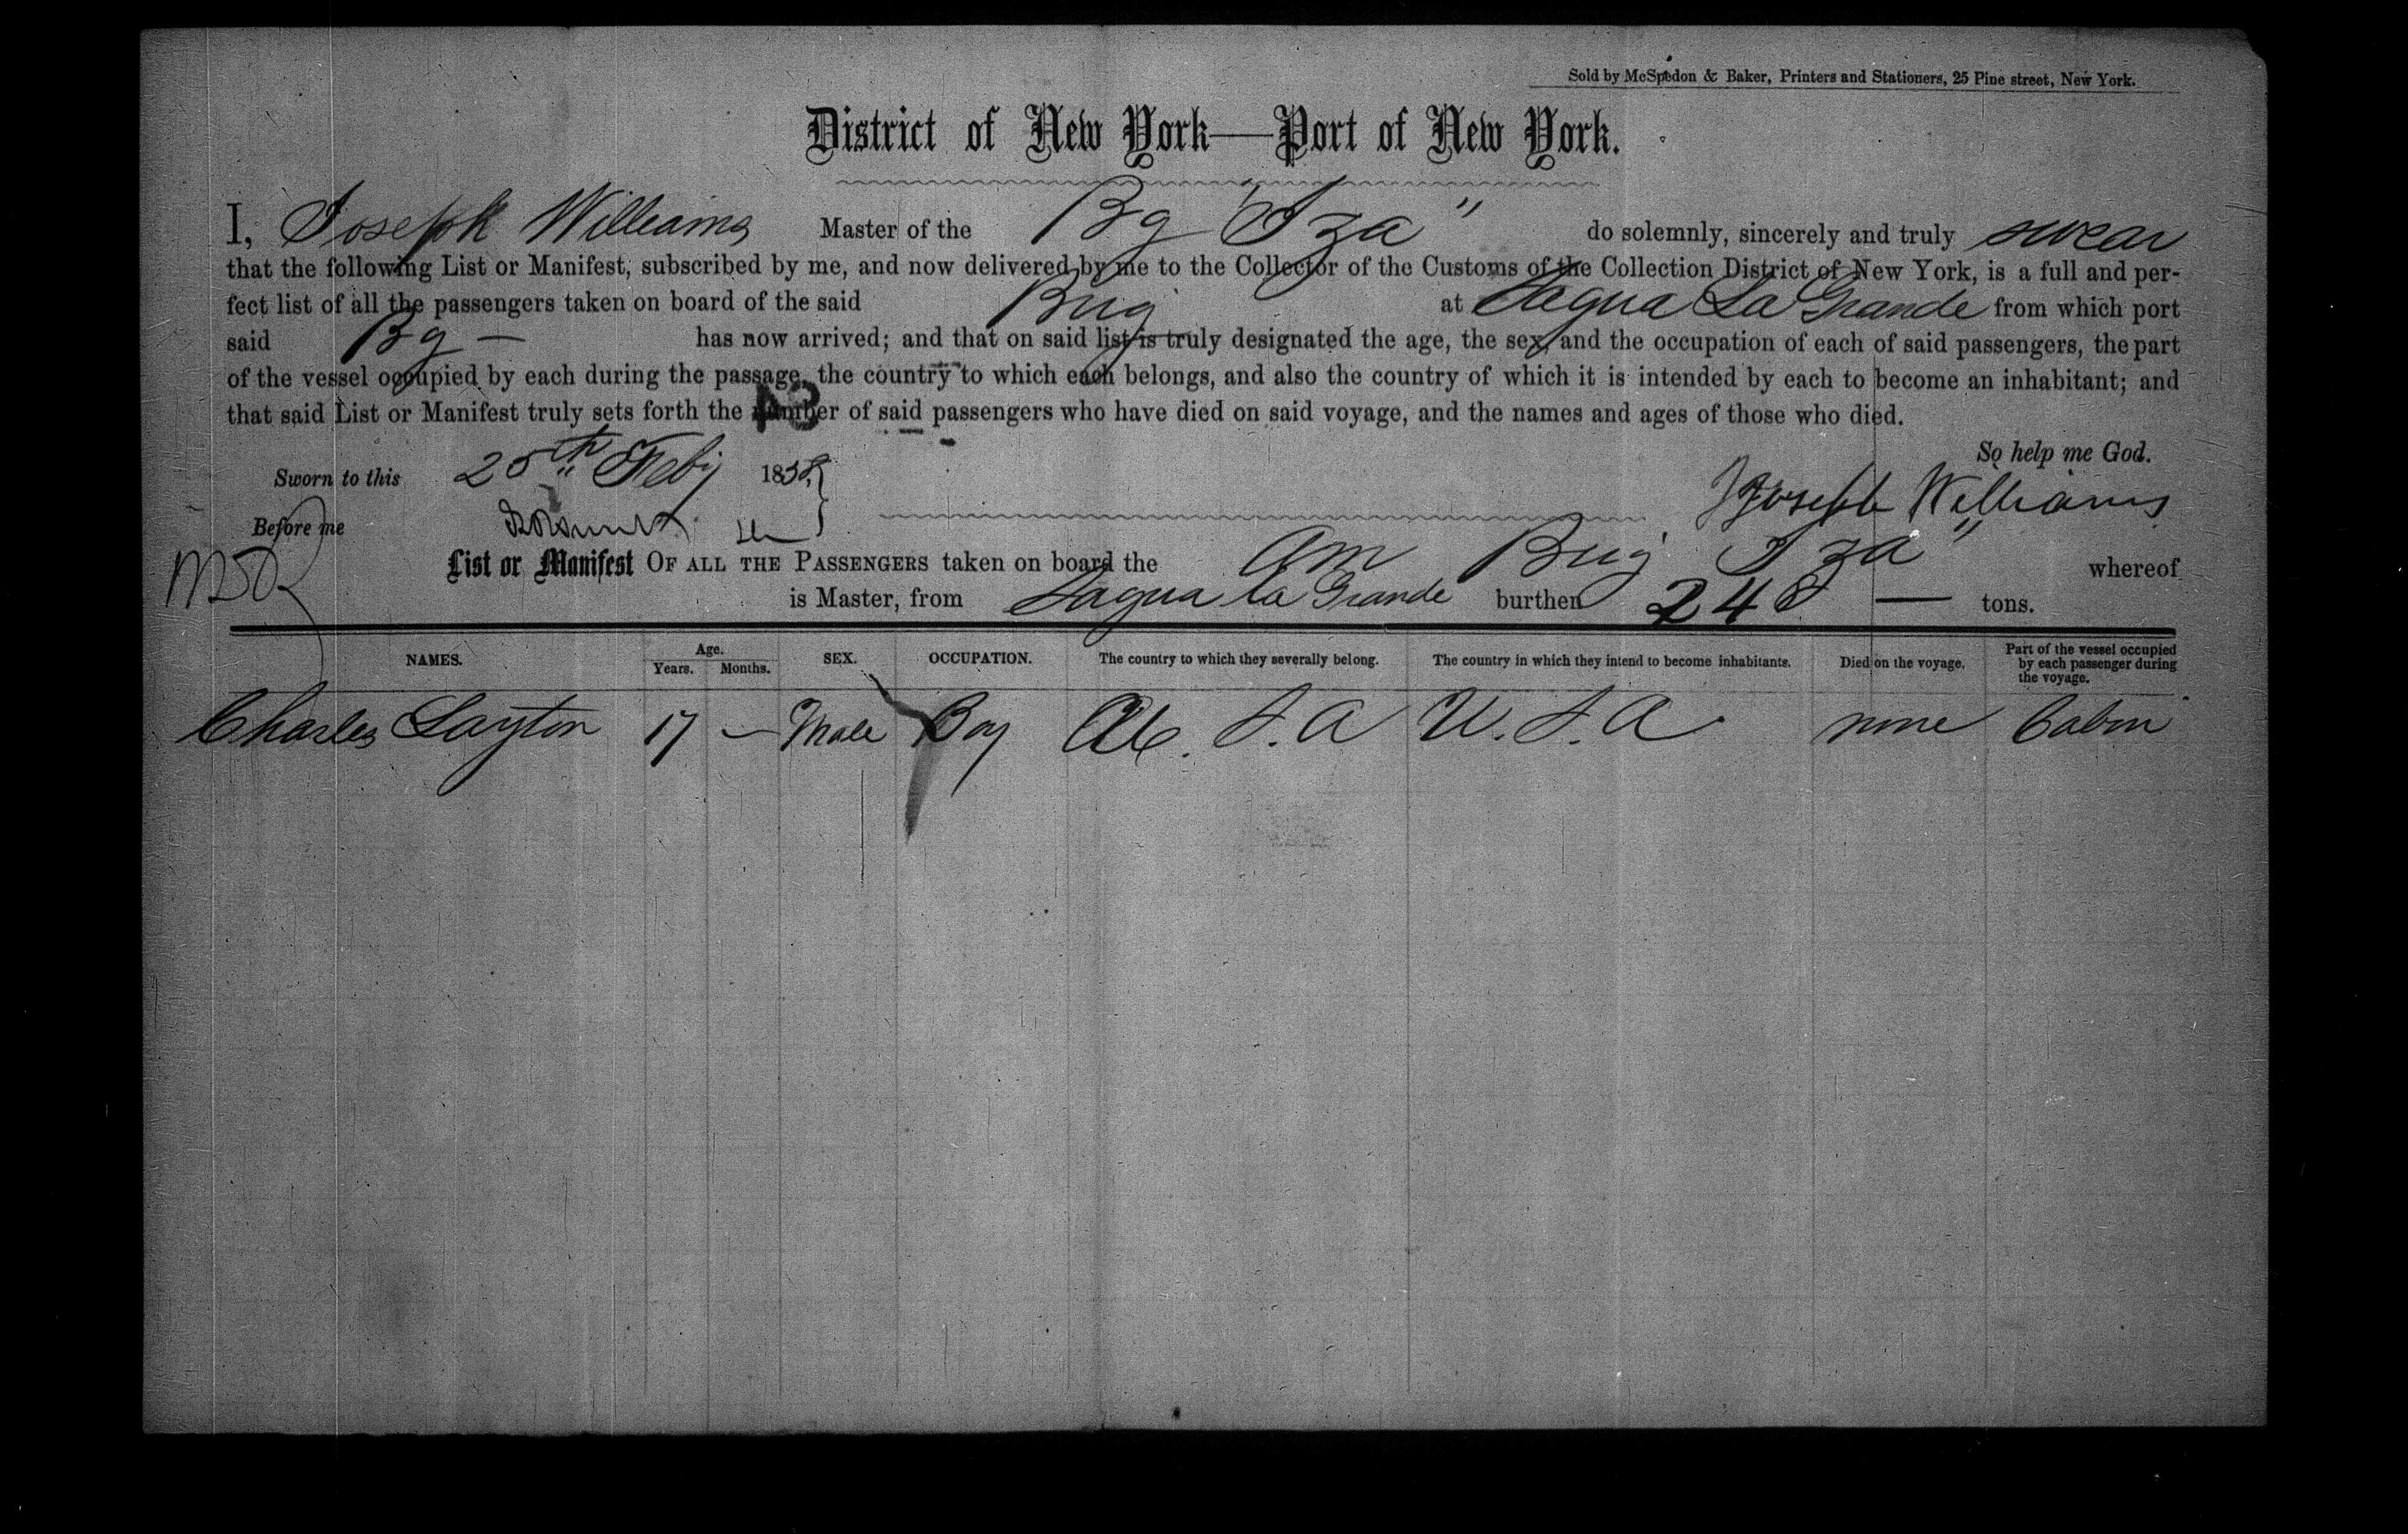 Sold by McSpedon & Baker, Printers and Stationers, 25 Pine street, New York.
District of New York—Port of New York.
I, Joseph Williams Master of the Bg "Iza" do solemnly, sincerely and truly swear
that the following List or Manifest, subscribed by me, and now delivered by me to the Collector of the Customs of the Collection District of New York, is a full and per-
fect list of all the passengers taken on board of the said Brig at Sagua La Grande from which port
said Bg — has now arrived; and that on said list is truly designated the age, the sex, and the occupation of each of said passengers, the part
of the vessel occupied by each during the passage, the country to which each belongs, and also the country of which it is intended by each to become an inhabitant; and
that said List or Manifest truly sets forth the number of said passengers who have died on said voyage, and the names and ages of those who died.
So help me God.
Sworn to this 25th Feby 185
Joseph Williams
Before me
List or Manifest OF ALL THE PASSENGERS taken on board the Am Brig Iza" whereof
is Master, from Sagua la Grande burthen 248 — tons.
NAMES. Age. Years. Months. SEX. OCCUPATION. The country to which they severally belong. The country in which they intend to become inhabitants. Died on the voyage. Part of the vessel occupied by each passenger during the voyage.
Charles Layton 17 — Male Boy U. S. A U. S. A. none Cabin